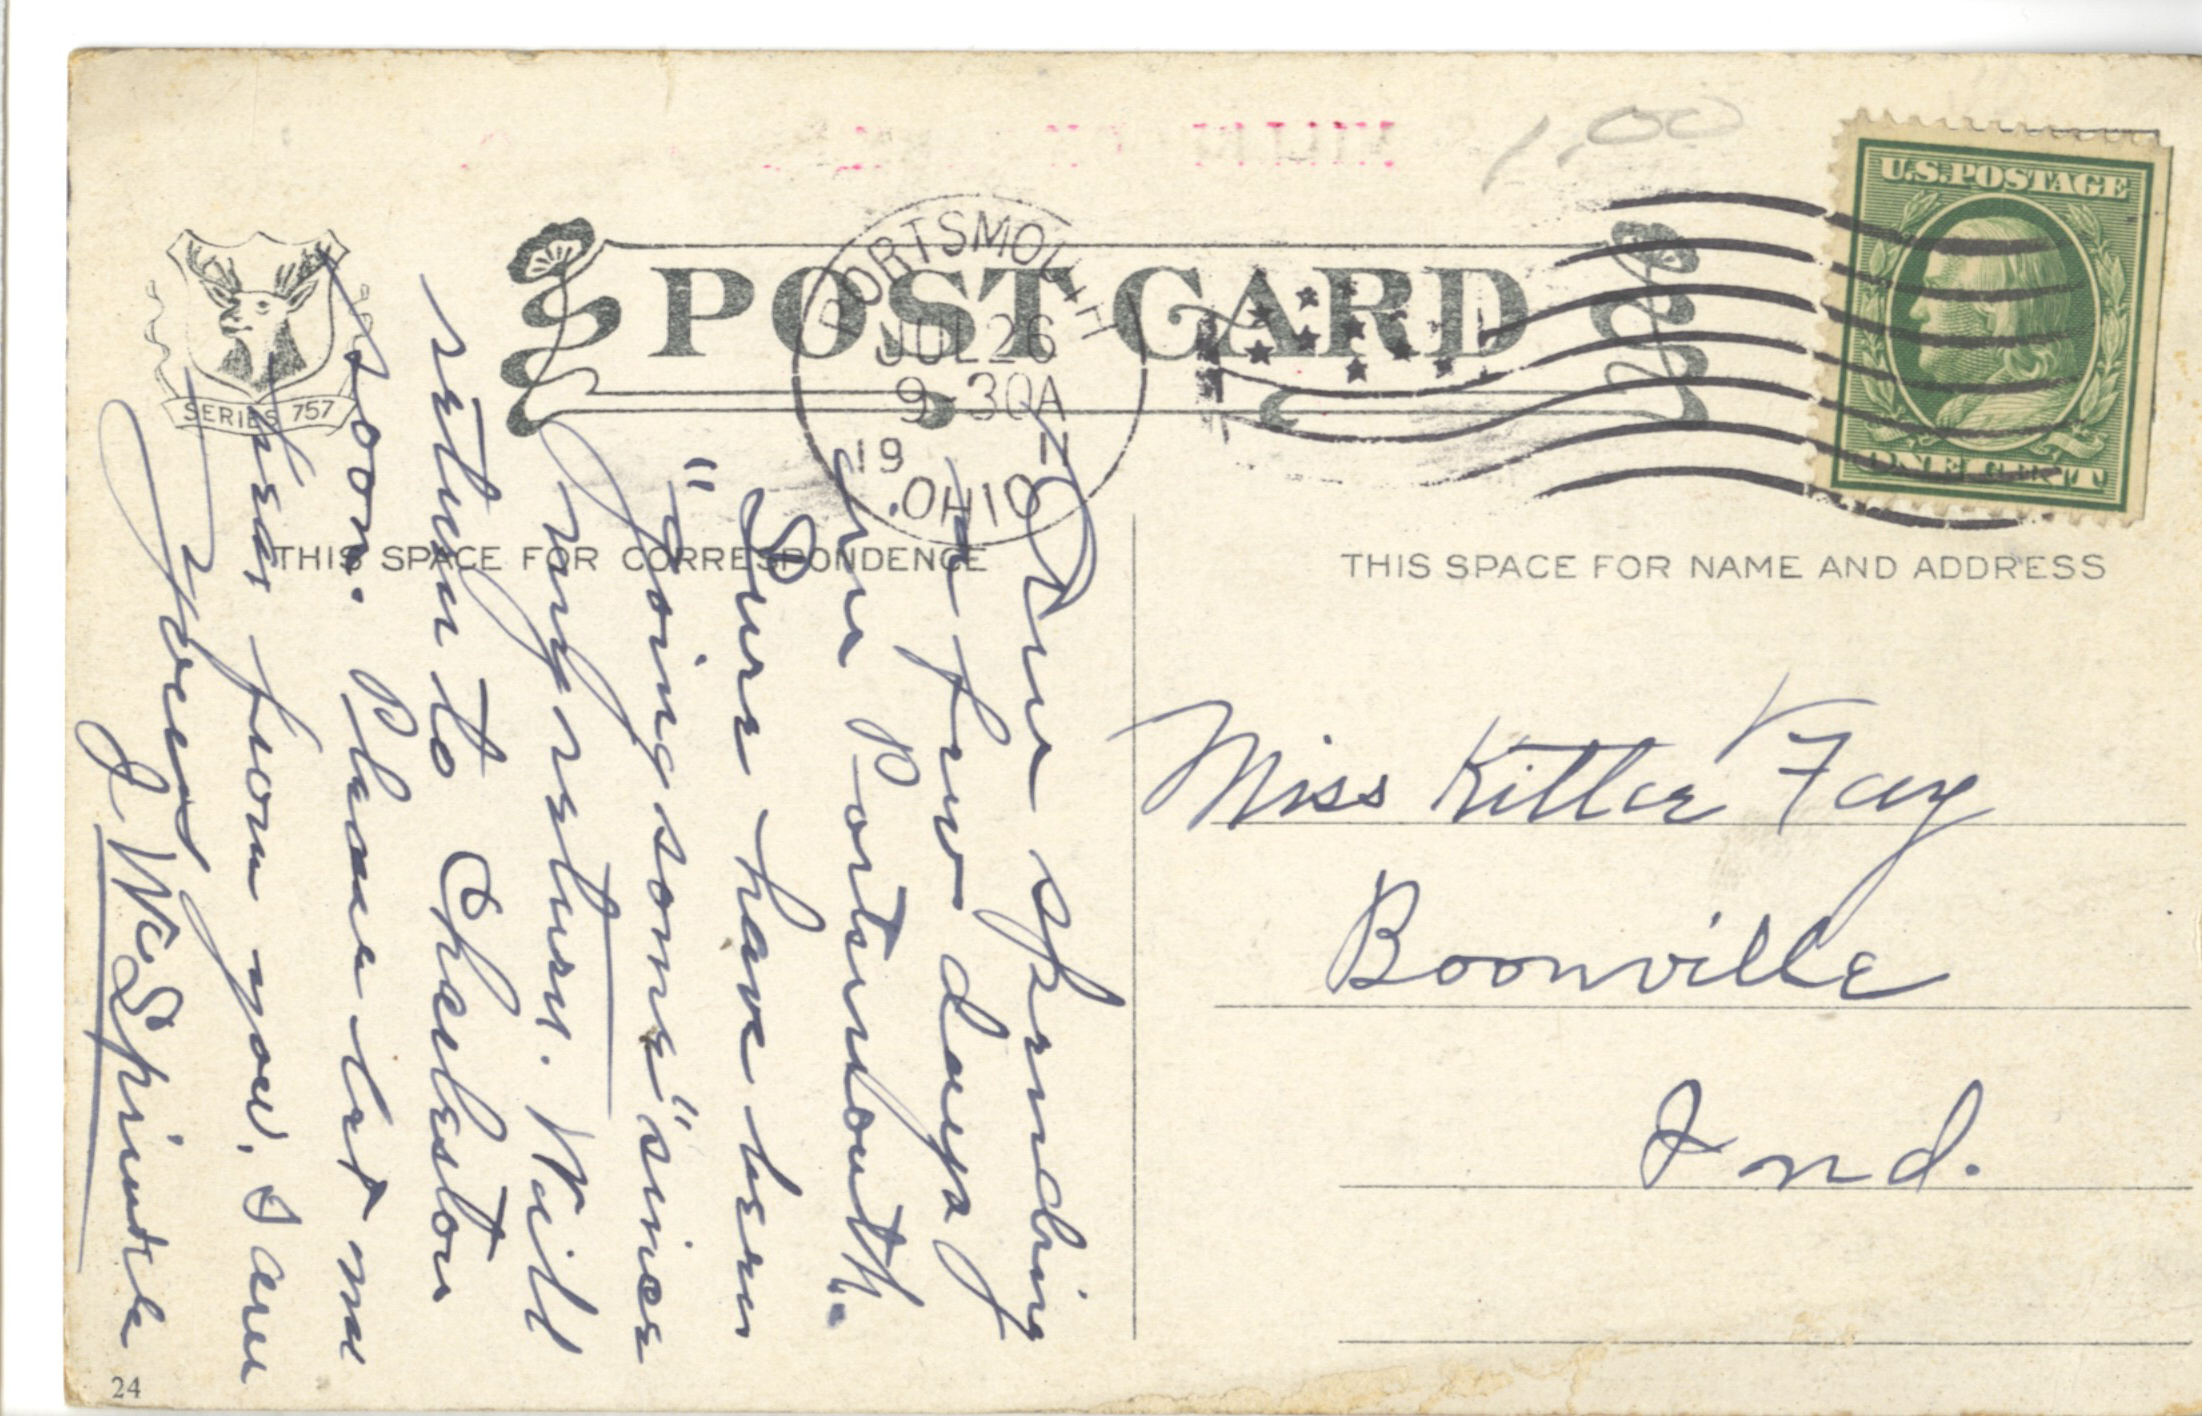 1.00
U.S. POSTAGE
POST CARD
PORTSMOUTH
JUL 26
9-30A
19
OHIO
SERIES 757
THIS SPACE FOR CORRESPONDENCE
THIS SPACE FOR NAME AND ADDRESS
Am spending
a few days
in Portsmouth.
Sure have been
"going some" since
my return. Will
return to Charleston
soon. Please let me
hear from you. I am
Yours
Miss Kittie Fay
Boonville
Ind.
24